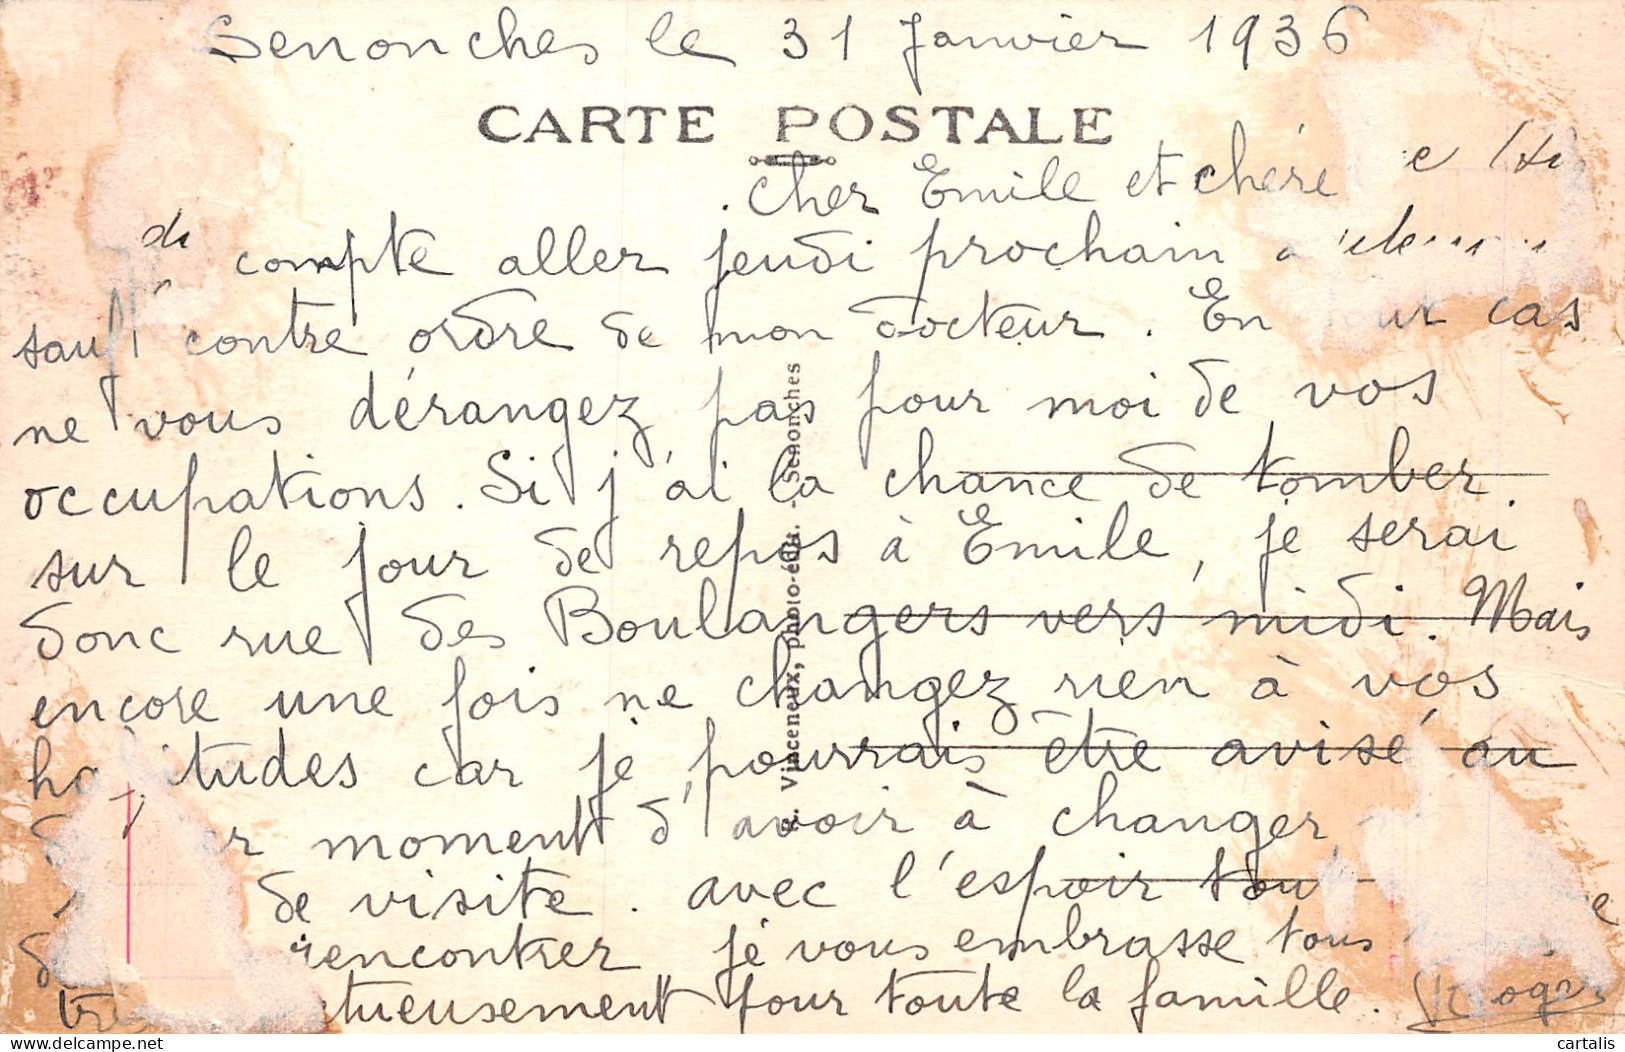 Senonches le 31 Janvier 1936
CARTE POSTALE
Cher Emile et chère
compte aller jeudi prochain
sauf contre ordre de mon docteur. En cas
ne vous dérangez pas pour moi de vos
occupations. Si j'ai la chance de tomber
sur le jour de repos à Emile, je serai
donc rue des Boulangers vers midi. Mais
encore une fois ne changez rien à vos
habitudes car je pourrais être avisé au
moment d'avoir à changer
de visite. avec l'espoir
rencontrer je vous embrasse tous
pour toute la famille. Roger
R. Vinceneux, photo-édit. - Senonches
cartalis
delcampe.net